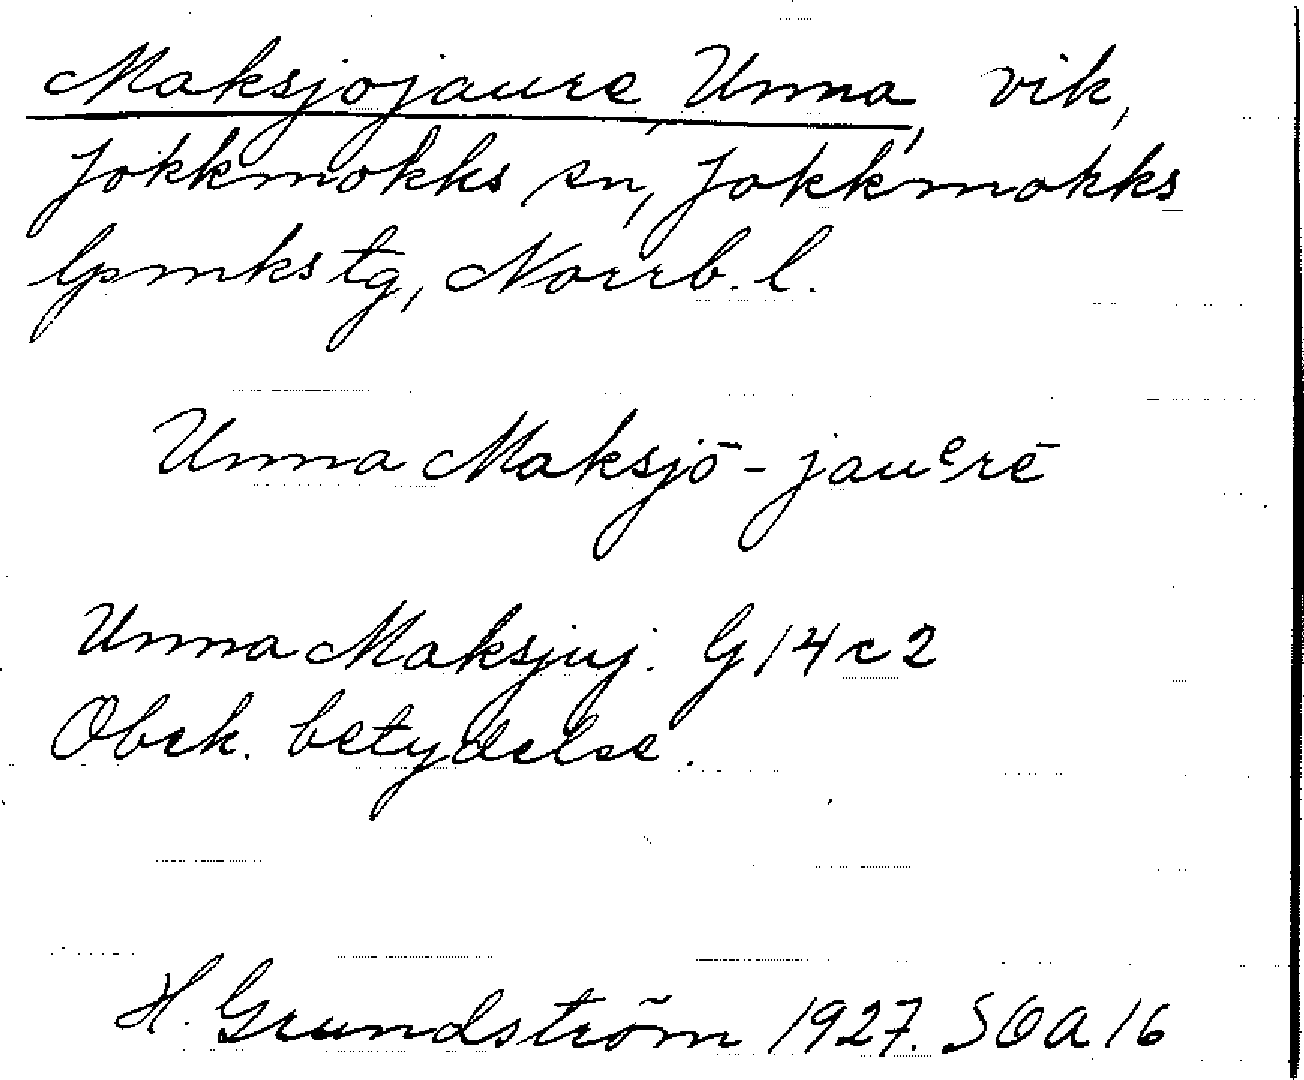 Maksjojaure, Unna, vik,
Jokkmokks sn, Jokkmokks
lpmks tg, Norrb. l.
Unna Maksjō-jauᵉrē
Unna Maksjuj. G 14 c 2
Obek. betydelse.
H. Grundström 1927. SOA 16